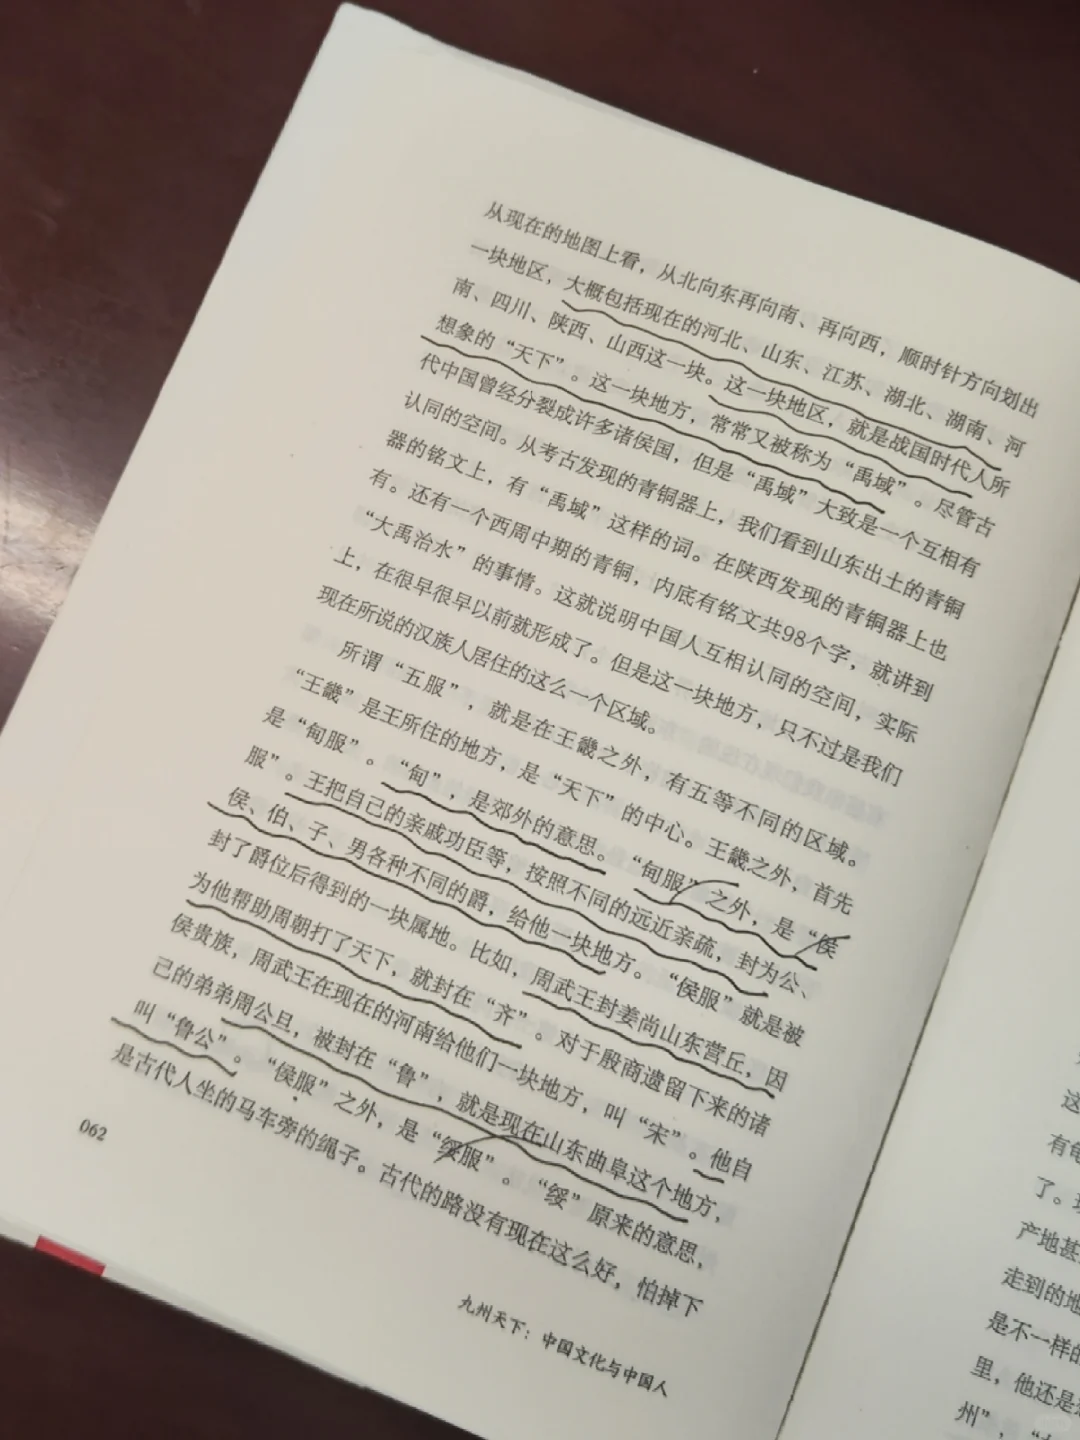 从现在的地图上看，从北向东再向南、再向西，顺时针方向划出
一块地区，大概包括现在的河北、山东、江苏、湖北、湖南、河
南、四川、陕西、山西这一块。这一块地区，就是战国时代人所
想象的“天下”。这一块地方，常常又被称为“禹域”。尽管古
代中国曾经分裂成许多诸侯国，但是“禹域”大致是一个互相有
认同的空间。从考古发现的青铜器上，我们看到山东出土的青铜
器的铭文上，有“禹域”这样的词。在陕西发现的青铜器上也
有。还有一个西周中期的青铜，内底有铭文共98个字，就讲到
“大禹治水”的事情。这就说明中国人互相认同的空间，实际
上，在很早很早以前就形成了。但是这一块地方，只不过是我们
现在所说的汉族人居住的这么一个区域。
所谓“五服”，就是在王畿之外，有五等不同的区域。
“王畿”是王所住的地方，是“天下”的中心。王畿之外，首先
是“甸服”。“甸”，是郊外的意思。“甸服”之外，是“侯
服”。王把自己的亲戚功臣等，按照不同的远近亲疏，封为公、
侯、伯、子、男各种不同的爵，给他一块地方。“侯服”就是被
封了爵位后得到的一块属地。比如，周武王封姜尚山东营丘，因
为他帮助周朝打了天下，就封在“齐”。对于殷商遗留下来的诸
侯贵族，周武王在现在的河南给他们一块地方，叫“宋”。他自
己的弟弟周公旦，被封在“鲁”，就是现在山东曲阜这个地方，
叫“鲁公”。“侯服”之外，是“绥服”。“绥”原来的意思，
是古代人坐的马车旁的绳子。古代的路没有现在这么好，怕掉下
062
九州天下：中国文化与中国人
这
有
了。
产地甚
走到的地
是不一样的
里，他还是
州”，